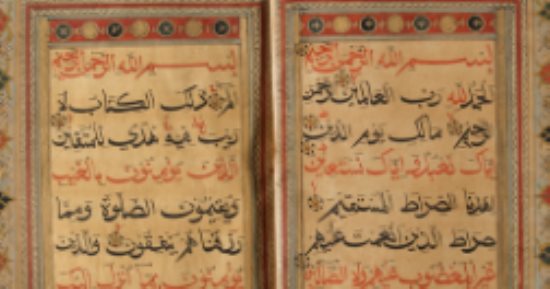 بسم الله الرحمن الرحيم
الحمد لله رب العالمين الرحمن
الرحيم مالك يوم الدين
اياك نعبد واياك نستعين
اهدنا الصراط المستقيم
صراط الذين انعمت عليهم
غير المغضوب عليهم ولا الضالين
بسم الله الرحمن الرحيم
الم ذلك الكتاب لا
ريب فيه هدى للمتقين
الذين يؤمنون بالغيب
ويقيمون الصلوة ومما
رزقناهم ينفقون والذين
يؤمنون بما انزل اليك